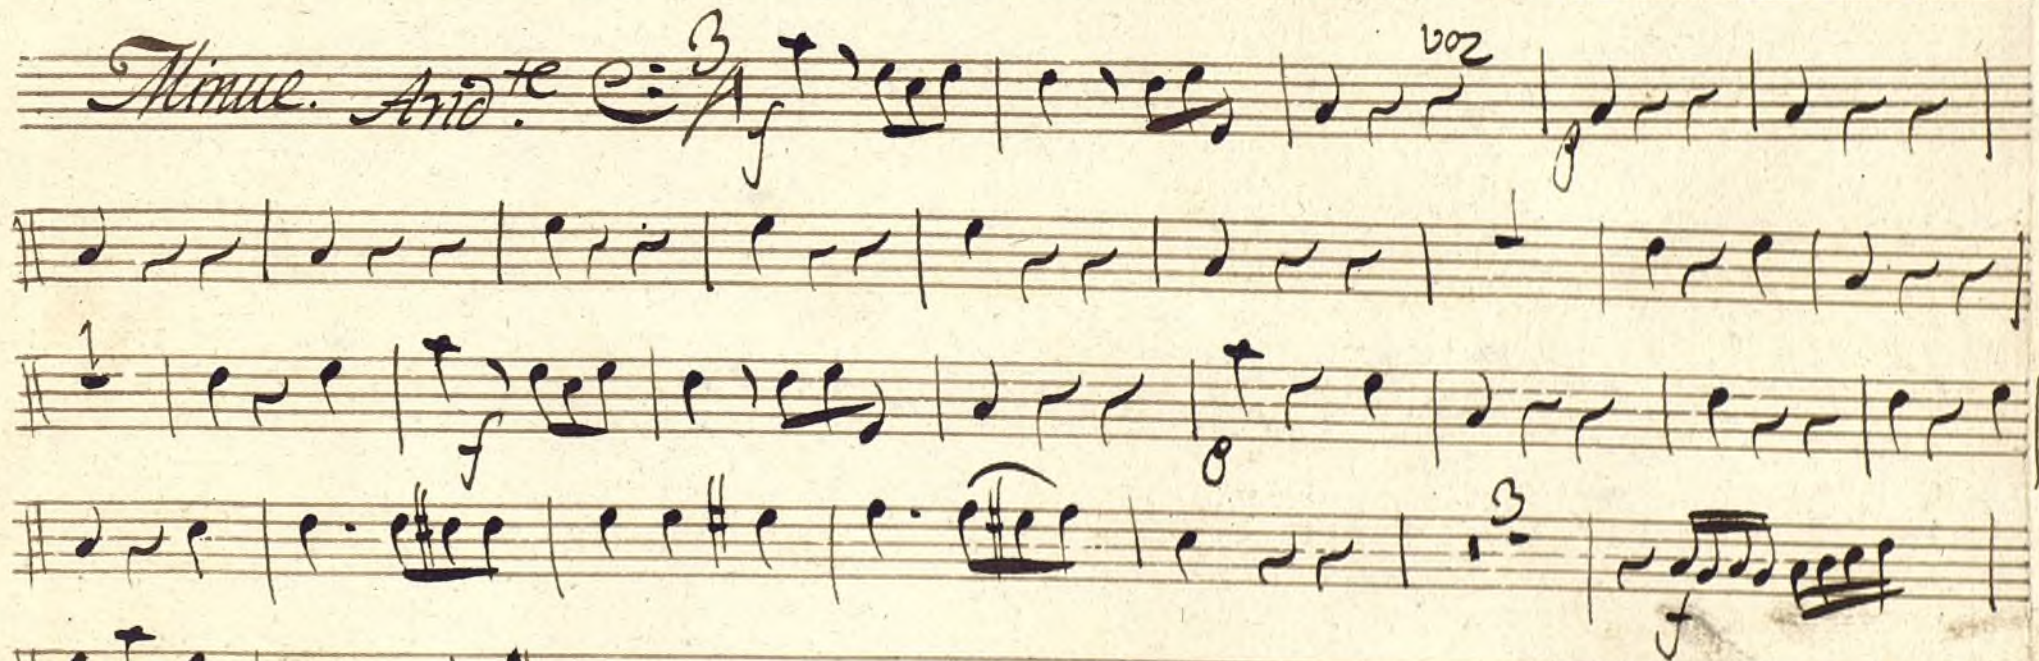 Minue. And.te 3/4 voz
f p
1
1
f p
3
f